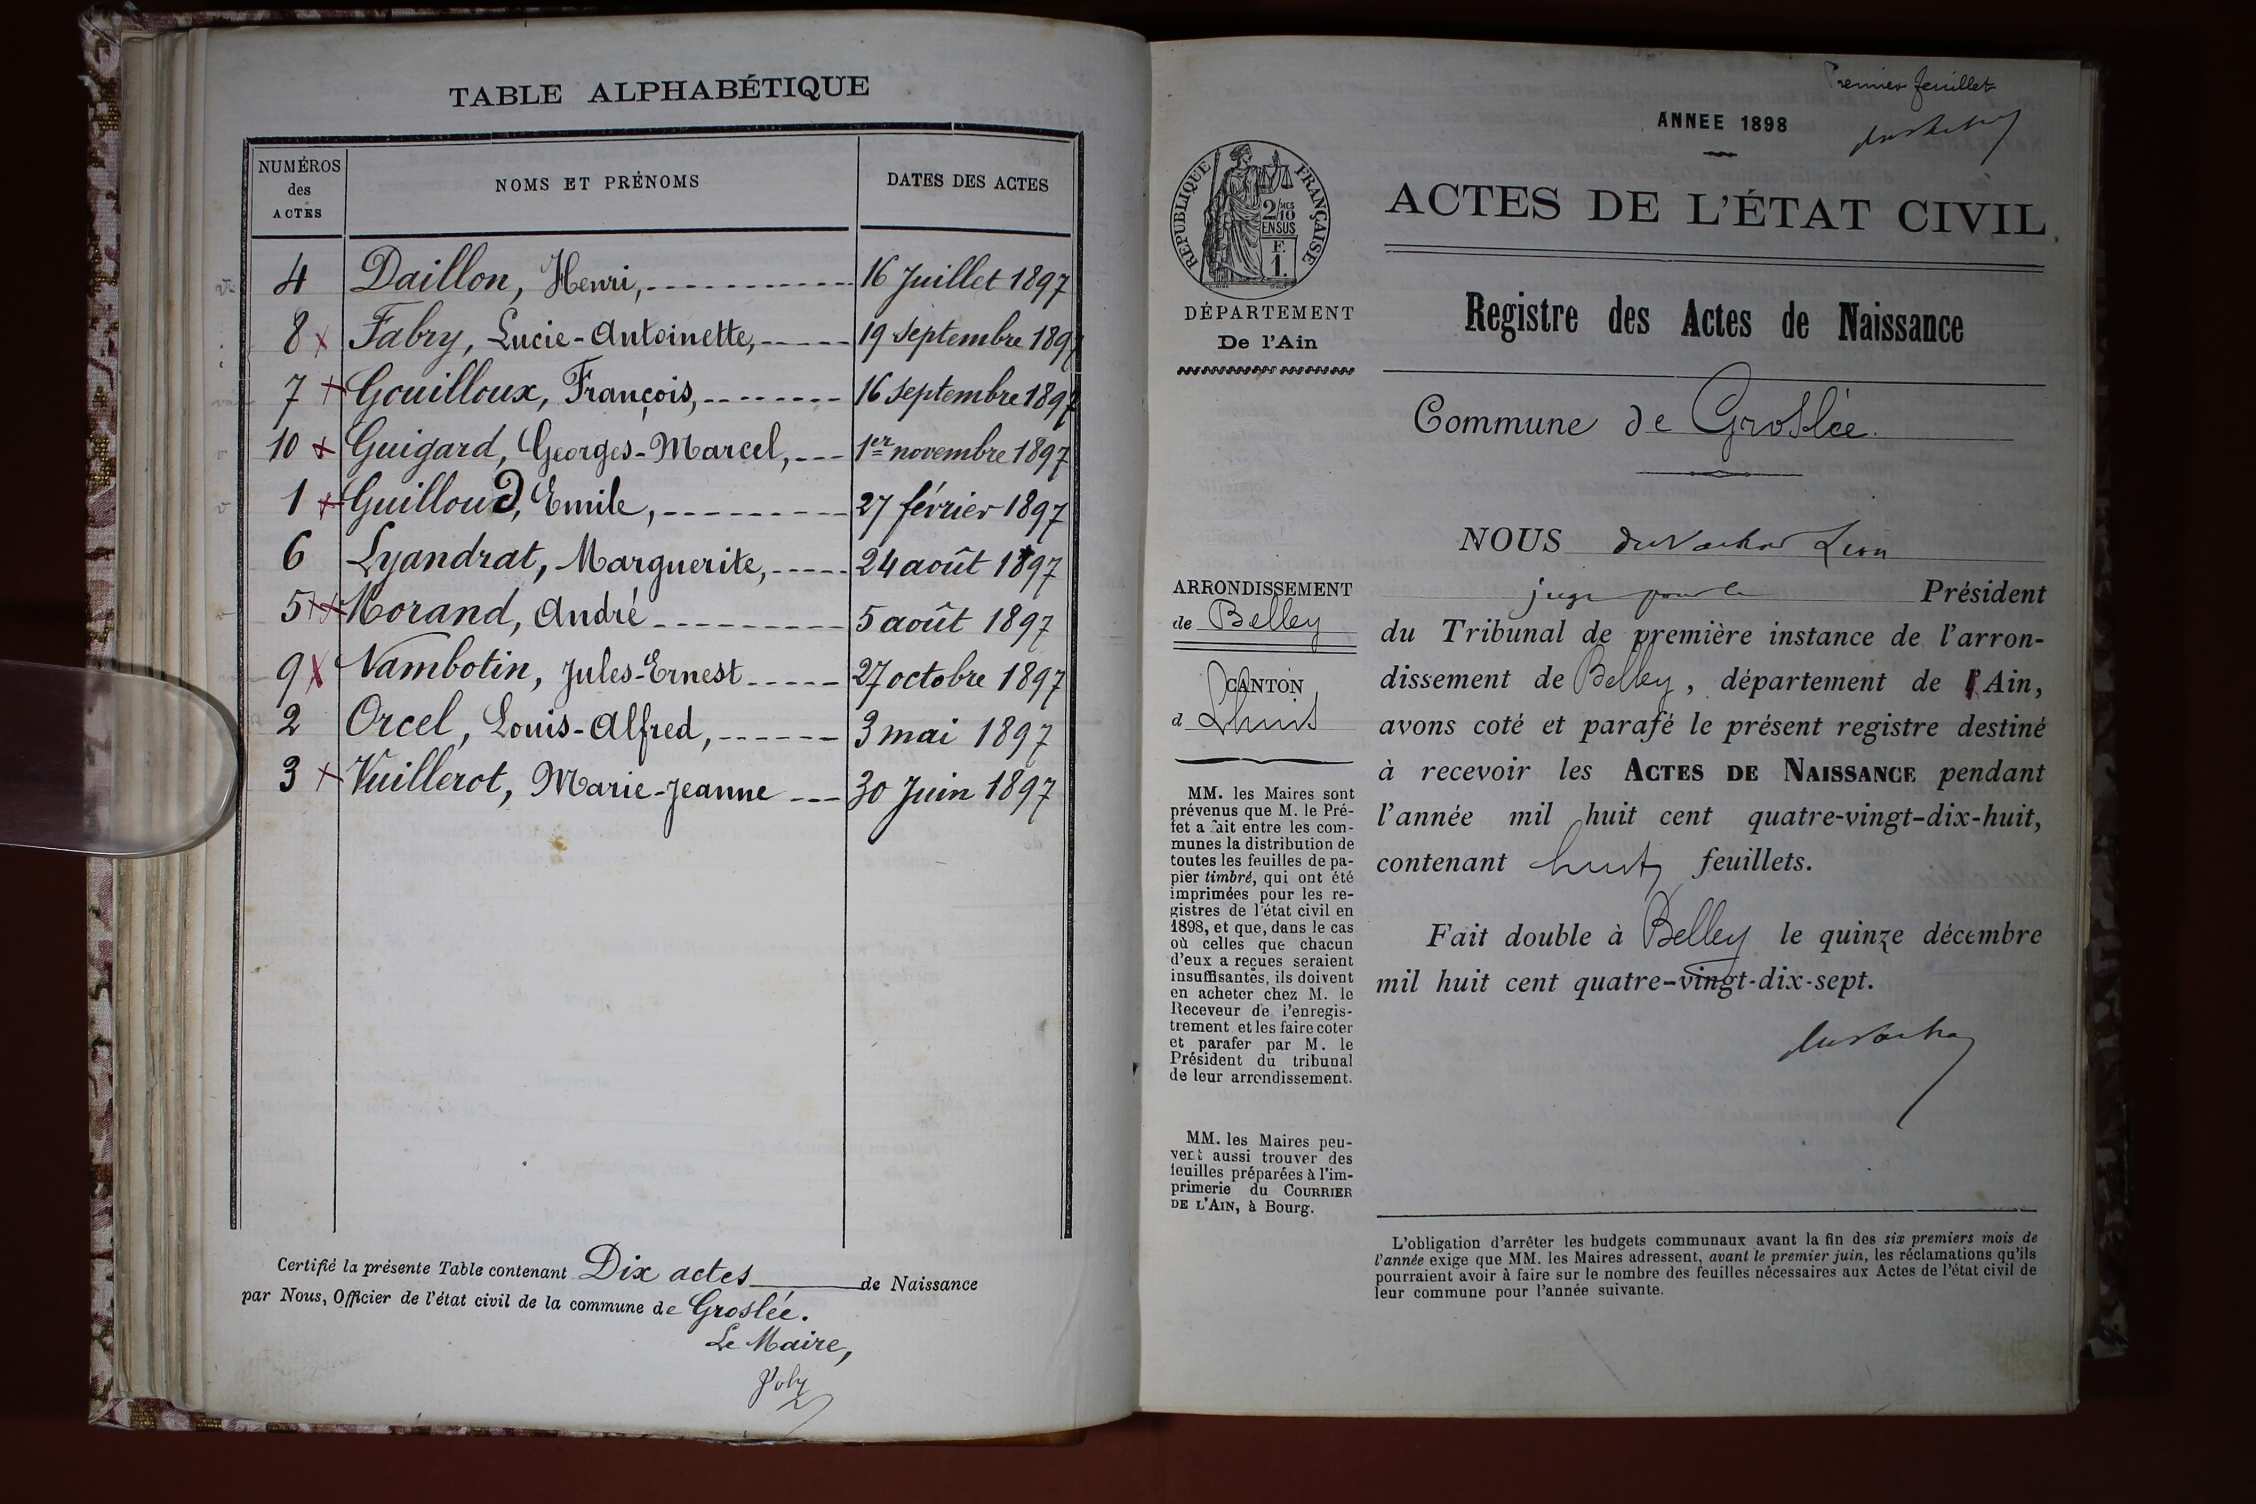 TABLE ALPHABÉTIQUE
NUMÉROS des ACTES
NOMS ET PRÉNOMS
DATES DES ACTES
4 Daillon, Henri, 16 Juillet 1897
8 Fabry, Lucie-Antoinette, 19 Septembre 1897
7 Gouilloux, François, 16 Septembre 1897
10 Guigard, Georges-Marcel, 1er novembre 1897
1 Guilloud, Emile, 27 février 1897
6 Lyandrat, Marguerite, 24 août 1897
5 Morand, André 5 août 1897
9 Nambotin, Jules-Ernest 27 octobre 1897
2 Orcel, Louis-Alfred, 3 mai 1897
3 Vuillerot, Marie-Jeanne 30 Juin 1897
Certifié la présente Table contenant Dix actes de Naissance
par Nous, Officier de l'état civil de la commune de Groslée.
Le Maire,
Joly
Premier feuillet
ANNEE 1898
RÉPUBLIQUE FRANÇAISE
2/10
EN SUS
F.
1.
DÉPARTEMENT
De l'Ain
ARRONDISSEMENT
de Belley
CANTON
d Lhuis
MM. les Maires sont
prévenus que M. le Pré-
fet a fait entre les com-
munes la distribution de
toutes les feuilles de pa-
pier timbré, qui ont été
imprimées pour les re-
gistres de l'état civil en
1898, et que, dans le cas
où celles que chacun
d'eux a reçues seraient
insuffisantes, ils doivent
en acheter chez M. le
Receveur de l'enregis-
trement et les faire coter
et parafer par M. le
Président du tribunal
de leur arrondissement.
MM. les Maires peu-
vent aussi trouver des
feuilles préparées à l'im-
primerie du COURRIER
DE L'AIN, à Bourg.
ACTES DE L'ÉTAT CIVIL
Registre des Actes de Naissance
Commune de Groslée.
NOUS Léon
juge pour le Président
du Tribunal de première instance de l'arron-
dissement de Belley, département de l'Ain,
avons coté et parafé le présent registre destiné
à recevoir les ACTES DE NAISSANCE pendant
l'année mil huit cent quatre-vingt-dix-huit,
contenant huit feuillets.
Fait double à Belley le quinze décembre
mil huit cent quatre-vingt-dix-sept.
L'obligation d'arrêter les budgets communaux avant la fin des six premiers mois de
l'année exige que MM. les Maires adressent, avant le premier juin, les réclamations qu'ils
pourraient avoir à faire sur le nombre des feuilles nécessaires aux Actes de l'état civil de
leur commune pour l'année suivante.